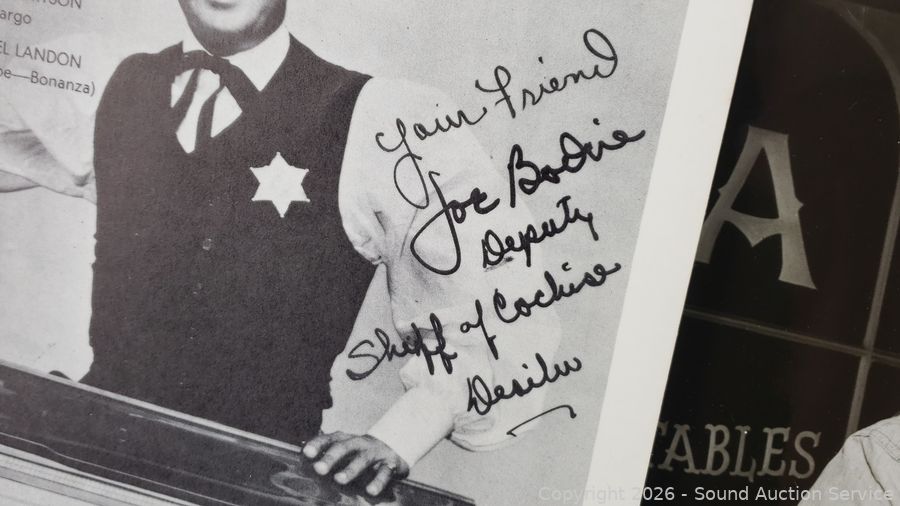 SON
argo
EL LANDON
oe—Bonanza)
Your Friend
Joe Bodrie
Deputy
Sheriff of Cochise
Desilu
A
TABLES
Copyright 2026 - Sound Auction Service